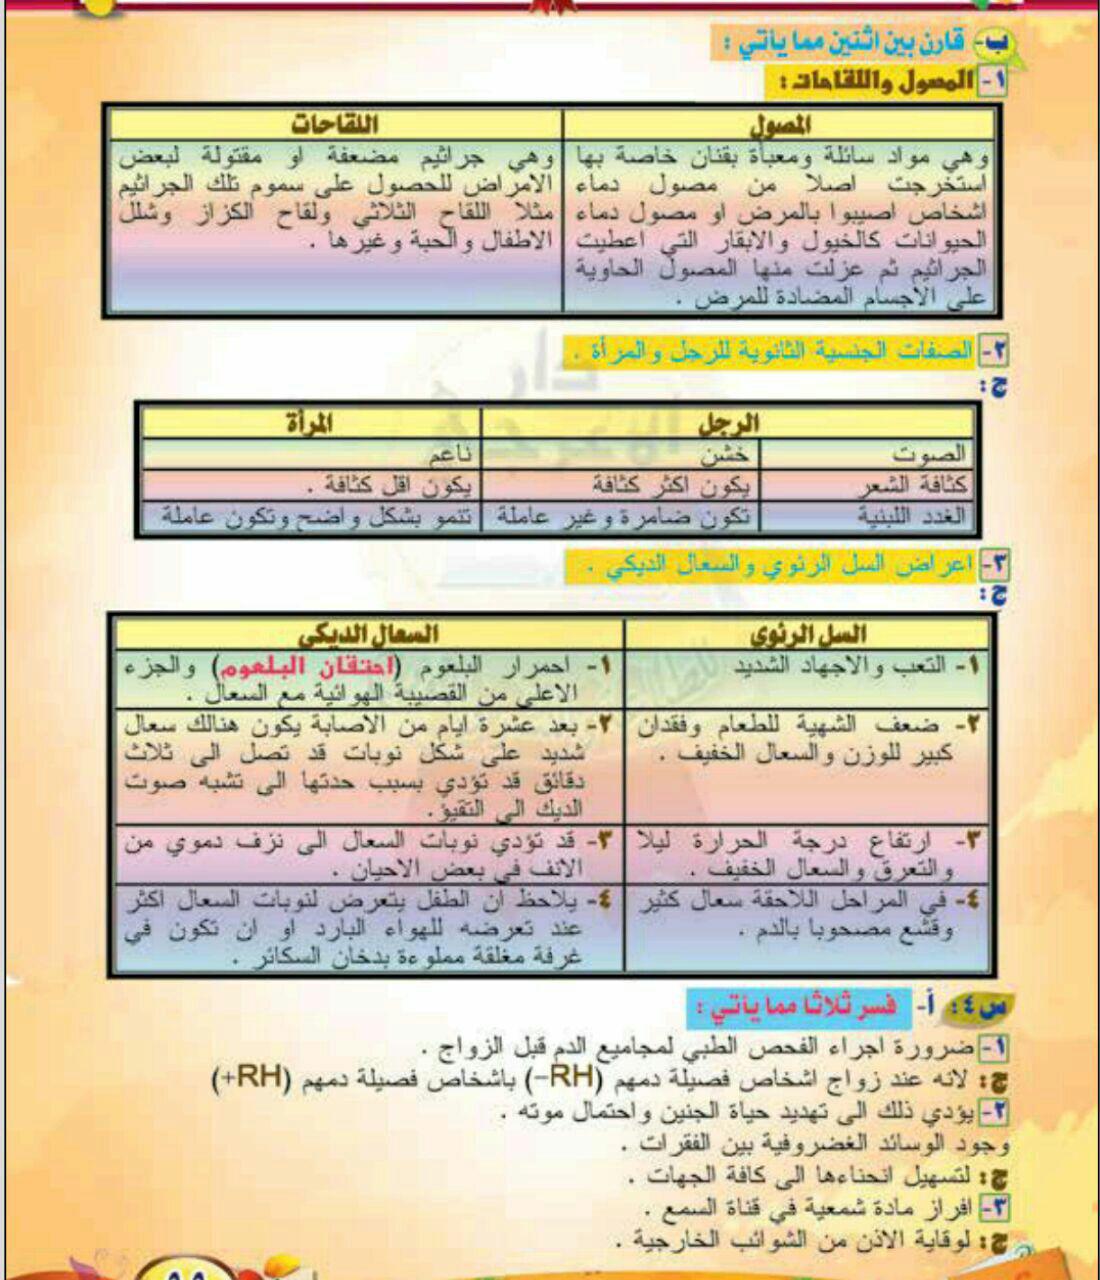 ب- قارن بين اثنين مما يأتي :
١- المصول واللقاحات :
المصول
اللقاحات
وهي مواد سائلة ومعبأة بقنان خاصة بها
استخرجت اصلا من مصول دماء
اشخاص اصيبوا بالمرض او مصول دماء
الحيوانات كالخيول والابقار التي اعطيت
الجراثيم ثم عزلت منها المصول الحاوية
على الاجسام المضادة للمرض .
وهي جراثيم مضعفة او مقتولة لبعض
الامراض للحصول على سموم تلك الجراثيم
مثلا اللقاح الثلاثي ولقاح الكزاز وشلل
الاطفال والحبة وغيرها .
٢- الصفات الجنسية الثانوية للرجل والمرأة .
ج :
الرجل المرأة
الصوت خشن ناعم
كثافة الشعر يكون اكثر كثافة يكون اقل كثافة .
الغدد اللبنية تكون ضامرة وغير عاملة تنمو بشكل واضح وتكون عاملة
٣- اعراض السل الرئوي والسعال الديكي .
ج :
السل الرئوي
السعال الديكي
١- التعب والاجهاد الشديد
١- احمرار البلعوم (احتقان البلعوم) والجزء
الاعلى من القصيبة الهوائية مع السعال .
٢- ضعف الشهية للطعام وفقدان
كبير للوزن والسعال الخفيف .
٢- بعد عشرة ايام من الأصابة يكون هنالك سعال
شديد على شكل نوبات قد تصل الى ثلاث
دقائق قد تؤدي بسبب حدتها الى تشبه صوت
الديك الى التقيؤ.
٣- ارتفاع درجة الحرارة ليلا
والتعرق والسعال الخفيف .
٣- قد تؤدي نوبات السعال الى نزف دموي من
الانف في بعض الاحيان .
٤- في المراحل اللاحقة سعال كثير
وقشع مصحوبا بالدم .
٤- يلاحظ ان الطفل يتعرض لنوبات السعال اكثر
عند تعرضه للهواء البارد او ان تكون في
غرفة مغلقة مملوءة بدخان السكائر .
س٤: أ- فسر ثلاثا مما يأتي :
١- ضرورة اجراء الفحص الطبي لمجاميع الدم قبل الزواج .
ج: لانه عند زواج اشخاص فصيلة دمهم (RH−) باشخاص فصيلة دمهم (RH+)
٢- يؤدي ذلك الى تهديد حياة الجنين واحتمال موته .
وجود الوسائد الغضروفية بين الفقرات .
ج: لتسهيل انحناءها الى كافة الجهات .
٣- افراز مادة شمعية في قناة السمع .
ج: لوقاية الاذن من الشوائب الخارجية .